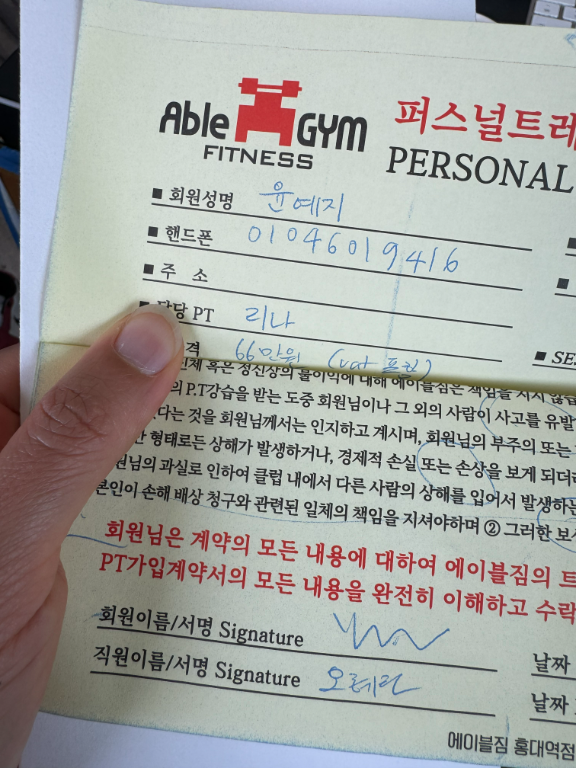 Able GYM
FITNESS
퍼스널트레
PERSONAL
■ 회원성명 윤예지
■ 핸드폰 01046019416
■ 주 소
담당 PT 리나
격 66만원 (vat 포함)
■ SE
인체 혹은 정신상의 불이익에 대해 에이블짐은 책임을 지지 않습
의 P.T강습을 받는 도중 회원님이나 그 외의 사람이 사고를 유발
다는 것을 회원님께서는 인지하고 계시며, 회원님의 부주의 또는
한 형태로든 상해가 발생하거나, 경제적 손실 또는 손상을 보게 되더라
원님의 과실로 인하여 클럽 내에서 다른 사람의 상해를 입어서 발생하는
본인이 손해 배상 청구와 관련된 일체의 책임을 지셔야하며 ② 그러한 보
회원님은 계약의 모든 내용에 대하여 에이블짐의 트
PT가입계약서의 모든 내용을 완전히 이해하고 수락
회원이름/서명 Signature
직원이름/서명 Signature 오혜란
날짜
날짜
에이블짐 홍대역점